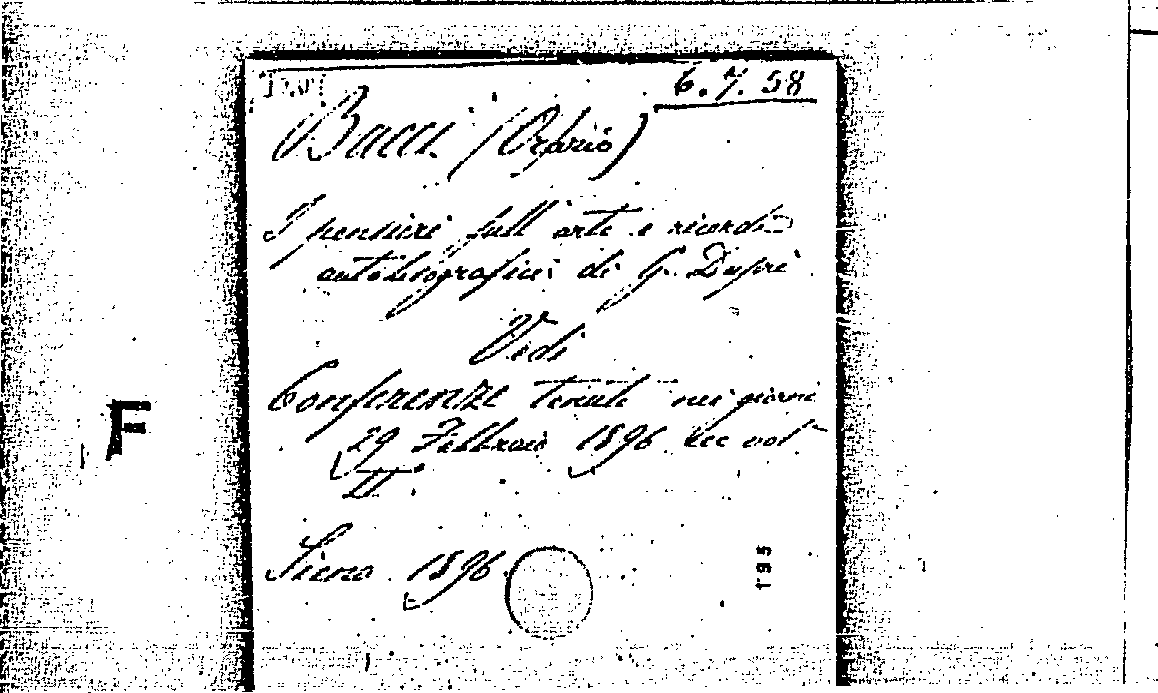 6. 7. 58
Bacci (Orazio)
I pensieri sull'arte e ricordi
autobiografici di G. Dupré
Vedi
Conferenze tenute nei giorni
29 Febbraio 1896 ecc vol
II.
F
Siena 1896
195